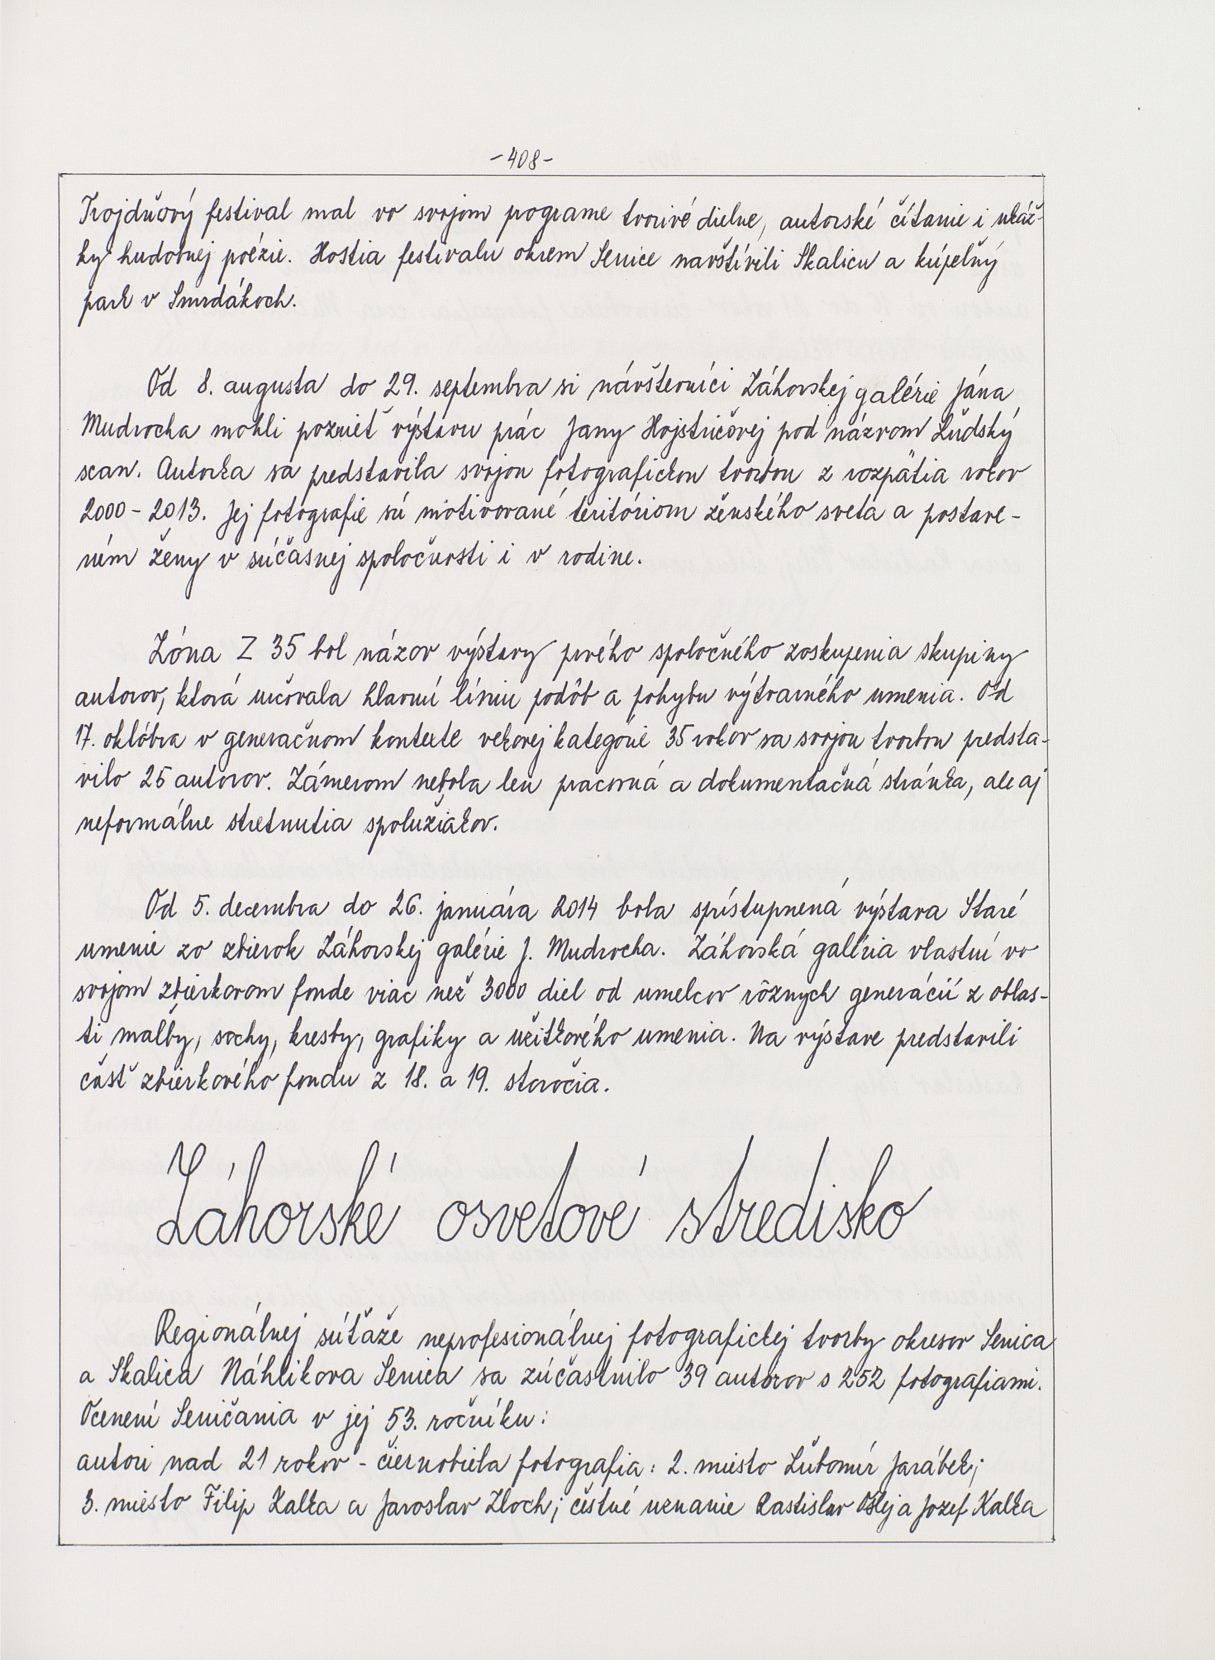 -408-
Trojdňový festival mal vo svojom pograme tvorivé dielne, autorské čítanie i ukáž-
ky hudobnej poézie. Hostia festivalu okrem Senice navštívili Skalicu a kúpeľný
park v Smrdákoch.
Od 8. augusta do 29. septembra si návštevníci Záhorskej galérie Jána
Mudrocha mohli pozrieť výstavu prác Jany Hojstričovej pod názvom Ľudský
scan. Autorka sa predstavila svojou fotografickou tvorbou z rozpätia rokov
2000 - 2013. Jej fotografie sú motivované teritóriom ženského sveta a postave-
ním ženy v súčasnej spoločnosti i v rodine.
Zóna Z 35 bol názov výstavy prvého spoločného zoskupenia skupiny
autorov, ktorá určovala hlavnú líniu podôb a pohybu výtvarného umenia. Od
17. októbra v generačnom kontexte vekovej kategórie 35 rokov sa svojou tvorbou predsta-
vilo 25 autorov. Zámerom nebola len pracovná a dokumentačná stránka, ale aj
neformálne stretnutia spolužiakov.
Od 5. decembra do 26. januára 2014 bola sprístupnená výstava Staré
umenie zo zbierok Záhorskej galérie J. Mudrocha. Záhorská galéria vlastní vo
svojom zbierkovom fonde viac než 3000 diel od umelcov rôznych generácií z oblas-
ti maľby, sochy, kresby, grafiky a úžitkového umenia. Na výstave predstavili
časť zbierkového fondu z 18. a 19. storočia.
Záhorské osvetové stredisko
Regionálnej súťaže neprofesionálnej fotografickej tvorby okresov Senica
a Skalica Náhlikova Senica sa zúčastnilo 39 autorov s 252 fotografiami.
Ocenení Seničania v jej 53. ročníku:
autori nad 21 rokov - čiernobiela fotografia: 2. miesto Ľubomír Jarábek;
3. miesto Filip Kalka a Jaroslav Zloch; čestné uznanie Rastislav a Jozef Kalka